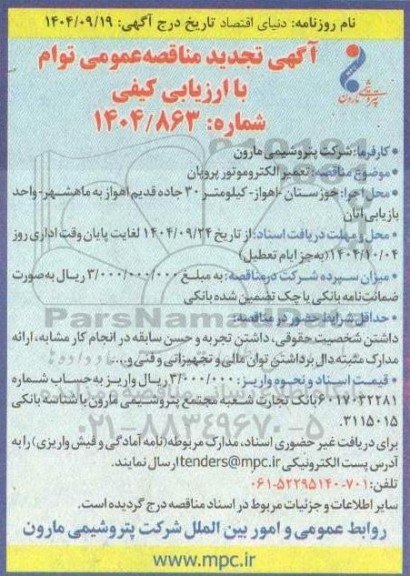 نام روزنامه: دنیای اقتصاد تاریخ درج آگهی: ۱۴۰۴/۰۹/۱۹
آگهی تجدید مناقصه عمومی توام
با ارزیابی کیفی
شماره: ۱۴۰۴/۸۶۳
پتروشیمی مارون
• کارفرما: شرکت پتروشیمی مارون
• موضوع مناقصه: تعمیر الکتروموتور پروپان
• محل اجرا: خوزستان -اهواز- کیلومتر ۳۰ جاده قدیم اهواز به ماهشهر- واحد
بازیابی اتان
• محل و مهلت دریافت اسناد: از تاریخ ۱۴۰۴/۰۹/۲۴ لغایت پایان وقت اداری روز
۱۴۰۴/۱۰/۰۴ (به جز ایام تعطیل)
• میزان سپرده شرکت در مناقصه: به مبلغ ۳/۰۰۰/۰۰۰/۰۰۰ ریال به صورت
ضمانت نامه بانکی یا چک تضمین شده بانکی
• حداقل شرایط حضور در مناقصه:
داشتن شخصیت حقوقی، داشتن تجربه و حسن سابقه در انجام کار مشابه، ارائه
مدارک مثبته دال بر داشتن توان مالی و تجهیزاتی و فنی و...
• قیمت اسناد و نحوه واریز: ۳/۰۰۰/۰۰۰ ریال واریز به حساب شماره
۶۰۱۷۰۳۲۲۸۱ بانک تجارت شعبه مجتمع پتروشیمی مارون با شناسه بانکی
۳۱۱۵۰۱۵.
برای دریافت غیر حضوری اسناد، مدارک مربوطه (نامه آمادگی و فیش واریزی) را به
آدرس پست الکترونیکی tenders@mpc.ir ارسال نمایند.
تلفن: ۷۰۱-۵۲۲۹۵۱۴۰-۰۶۱
سایر اطلاعات و جزئیات مربوط در اسناد مناقصه درج گردیده است.
روابط عمومی و امور بین الملل شرکت پتروشیمی مارون
www.mpc.ir
۰۲۱-۸۸۳۴۹۶۷۰-۵